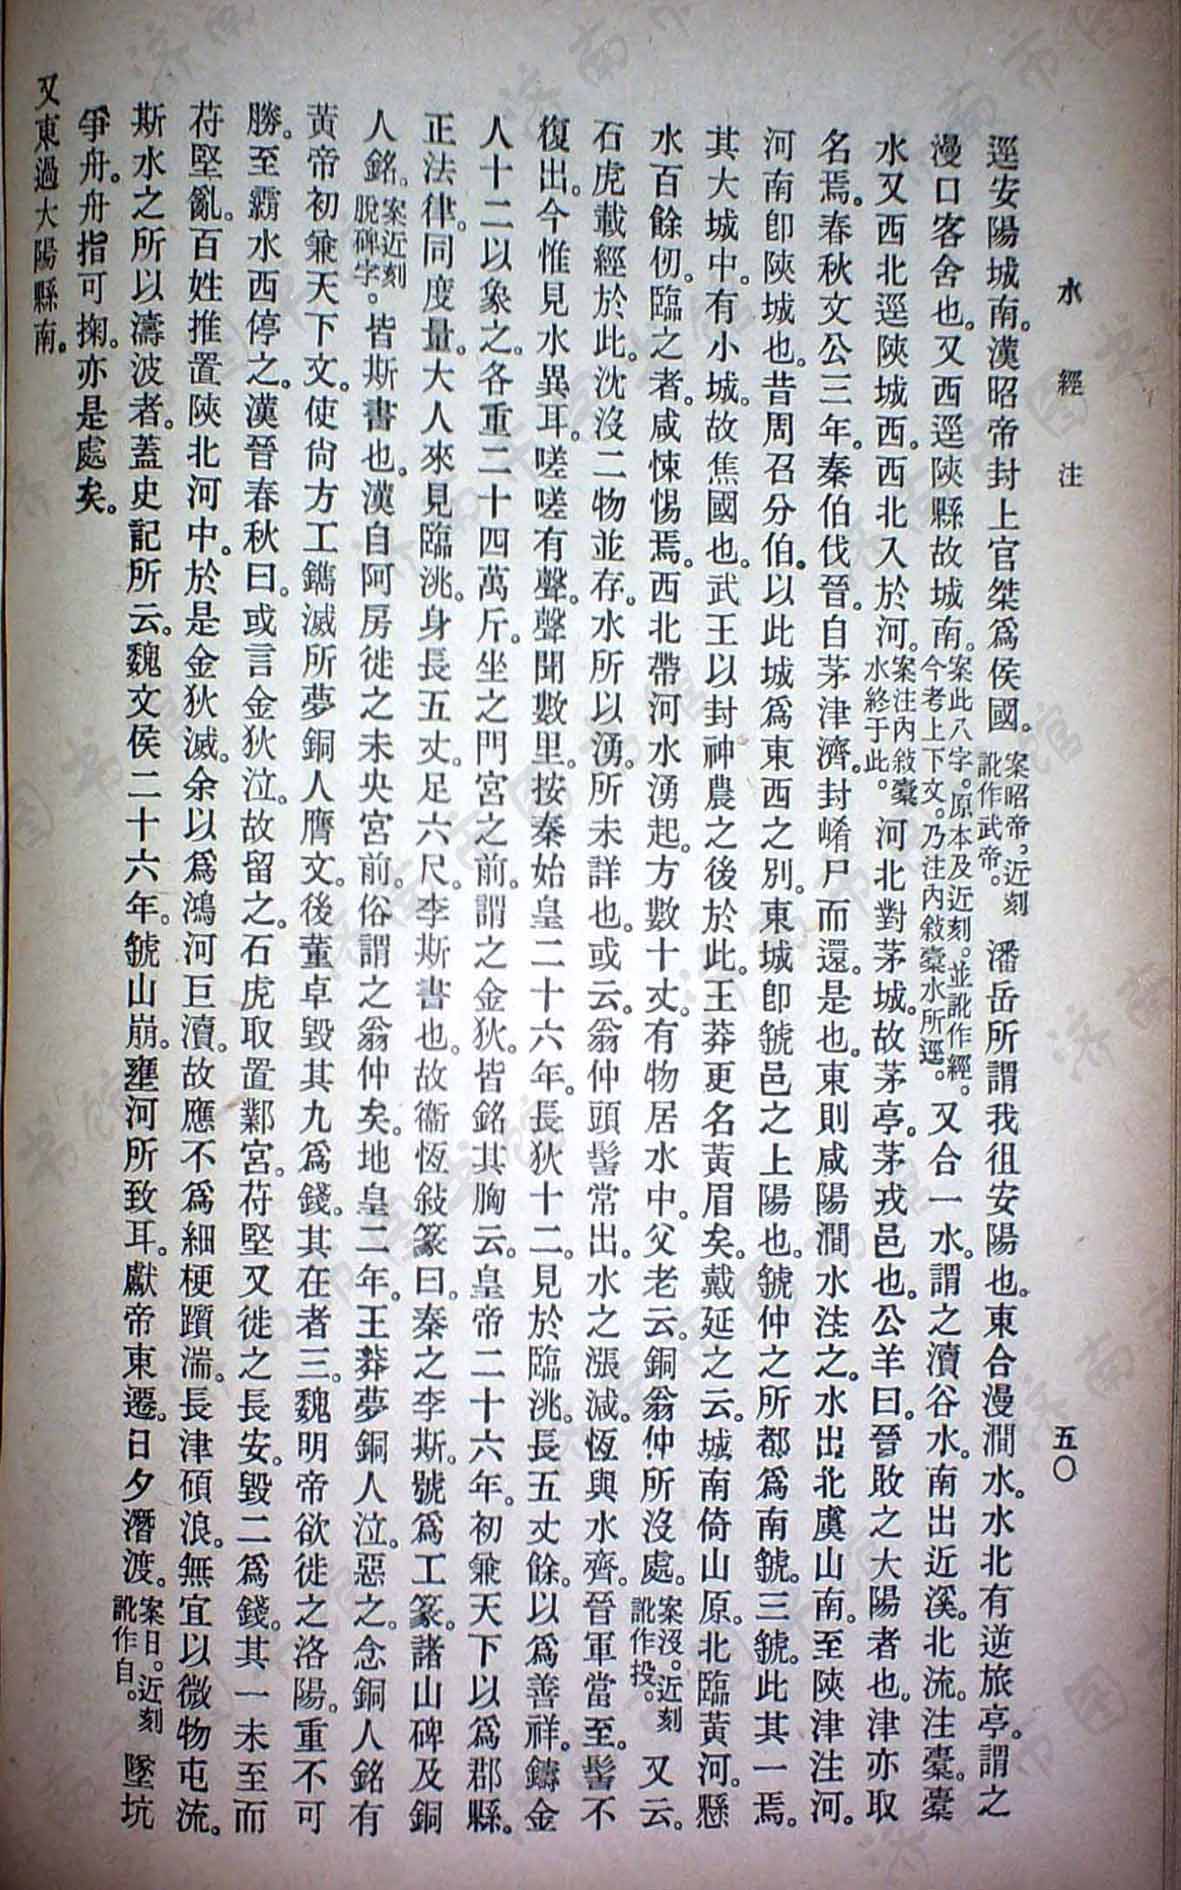 水經注
五〇
逕安陽城南。漢昭帝封上官桀爲侯國。案昭帝，近刻訛作武帝。潘岳所謂我徂安陽也。東合漫澗水。水北有逆旅亭。謂之
漫口客舍也。又西逕陝縣故城南。案此八字。原本及近刻。並訛作經。今考上下文。乃注內敍橐水所逕。又合一水。謂之瀆谷水。南出近溪。北流。注橐。橐
水又西北逕陝城西。西北入於河。案注內敍橐水終于此。河北對茅城。故茅亭。茅戎邑也。公羊曰。晉敗之大陽者也。津亦取
名焉。春秋文公三年。秦伯伐晉。自茅津濟。封崤尸而還。是也。東則咸陽澗水注之。水出北虞山南。至陝津注河。
河南卽陝城也。昔周召分伯。以此城爲東西之別。東城卽虢邑之上陽也。虢仲之所都爲南虢。三虢。此其一焉。
其大城中。有小城。故焦國也。武王以封神農之後於此。王莽更名黃眉矣。戴延之云。城南倚山原。北臨黃河。懸
水百餘仞。臨之者。咸悚惕焉。西北帶河水湧起。方數十丈。有物居水中。父老云。銅翁仲所沒處。案沒。近刻訛作投。又云。
石虎載經於此。沈沒二物並存。水所以湧。所未詳也。或云。翁仲頭髻常出。水之漲減。恆與水齊。晉軍當至。髻不
復出。今惟見水異耳。嗟嗟有聲。聲聞數里。按秦始皇二十六年。長狄十二。見於臨洮。長五丈餘。以爲善祥。鑄金
人十二以象之。各重二十四萬斤。坐之門宮之前。謂之金狄。皆銘其胸云。皇帝二十六年。初兼天下以爲郡縣。
正法律。同度量。大人來見臨洮。身長五丈。足六尺。李斯書也。故衞恆敍篆曰。秦之李斯。號爲工篆。諸山碑及銅
人銘。案近刻脫碑字。皆斯書也。漢自阿房徙之未央宮前。俗謂之翁仲矣。地皇二年。王莽夢銅人泣。惡之。念銅人銘有
黃帝初兼天下文。使尙方工鐫滅所夢銅人膺文。後董卓毀其九爲錢。其在者三。魏明帝欲徙之洛陽。重不可
勝。至霸水西停之。漢晉春秋曰。或言金狄泣。故留之。石虎取置鄴宮。苻堅又徙之長安。毀二爲錢。其一未至而
苻堅亂。百姓推置陝北河中。於是金狄滅。余以爲鴻河巨瀆。故應不爲細梗躓湍。長津碩浪。無宜以微物屯流。
斯水之所以濤波者。蓋史記所云。魏文侯二十六年。虢山崩。壅河所致耳。獻帝東遷。日夕潛渡。案日。近刻訛作自。墜坑
爭舟。舟指可掬。亦是處矣。
又東過大陽縣南。